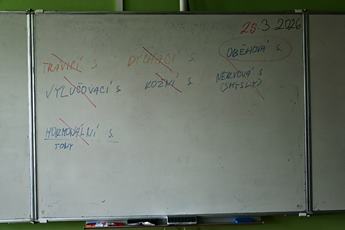 26.3.2026
TRÁVICÍ S. DÝCHACÍ S. OBĚHOVÁ S.
VYLUČOVACÍ S. KOŽNÍ S. NERVOVÁ S.
(SMYSLY)
HORMONÁLNÍ S.
TONY